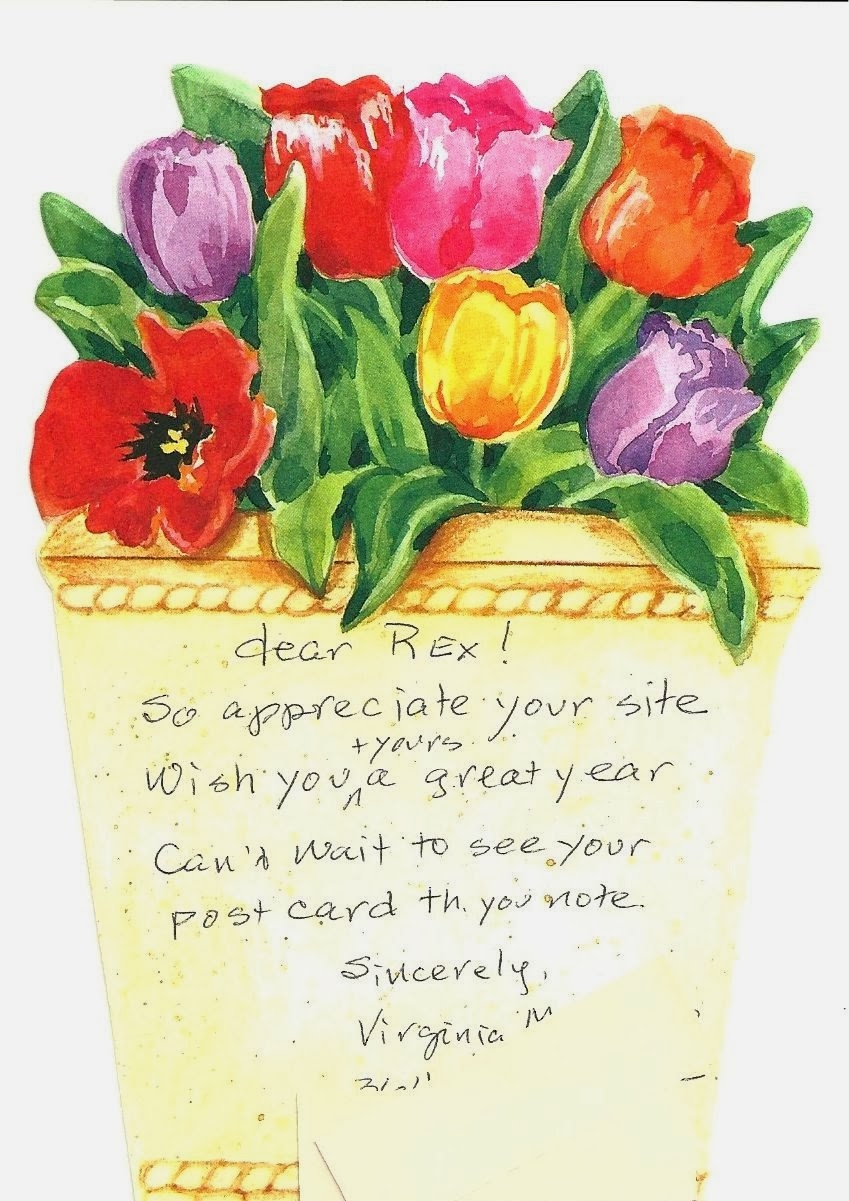 dear REx!
So appreciate your site
+ yours
Wish you ^ a great year
Can't wait to see your
post card th. you note.
Sincerely,
Virginia M